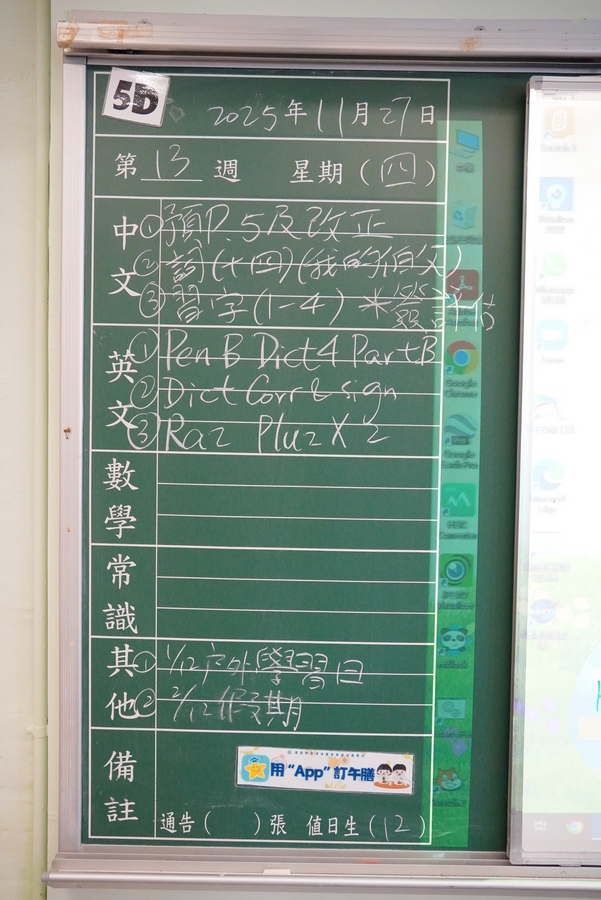 5D
2025年11月27日
第13週 星期(四)
中文
①預P.5及改正
②詞(十四)(我的伯父)
③習字(1-4) *簽評估
英文
①Pen B Dict4 Part B
②Dict Corr & sign
③Raz Pluz X 2
數學
常識
其他
①1/12戶外學習日
②2/12假期
備註
用“App”訂午膳
通告( )張 值日生(12)
Google Chrome